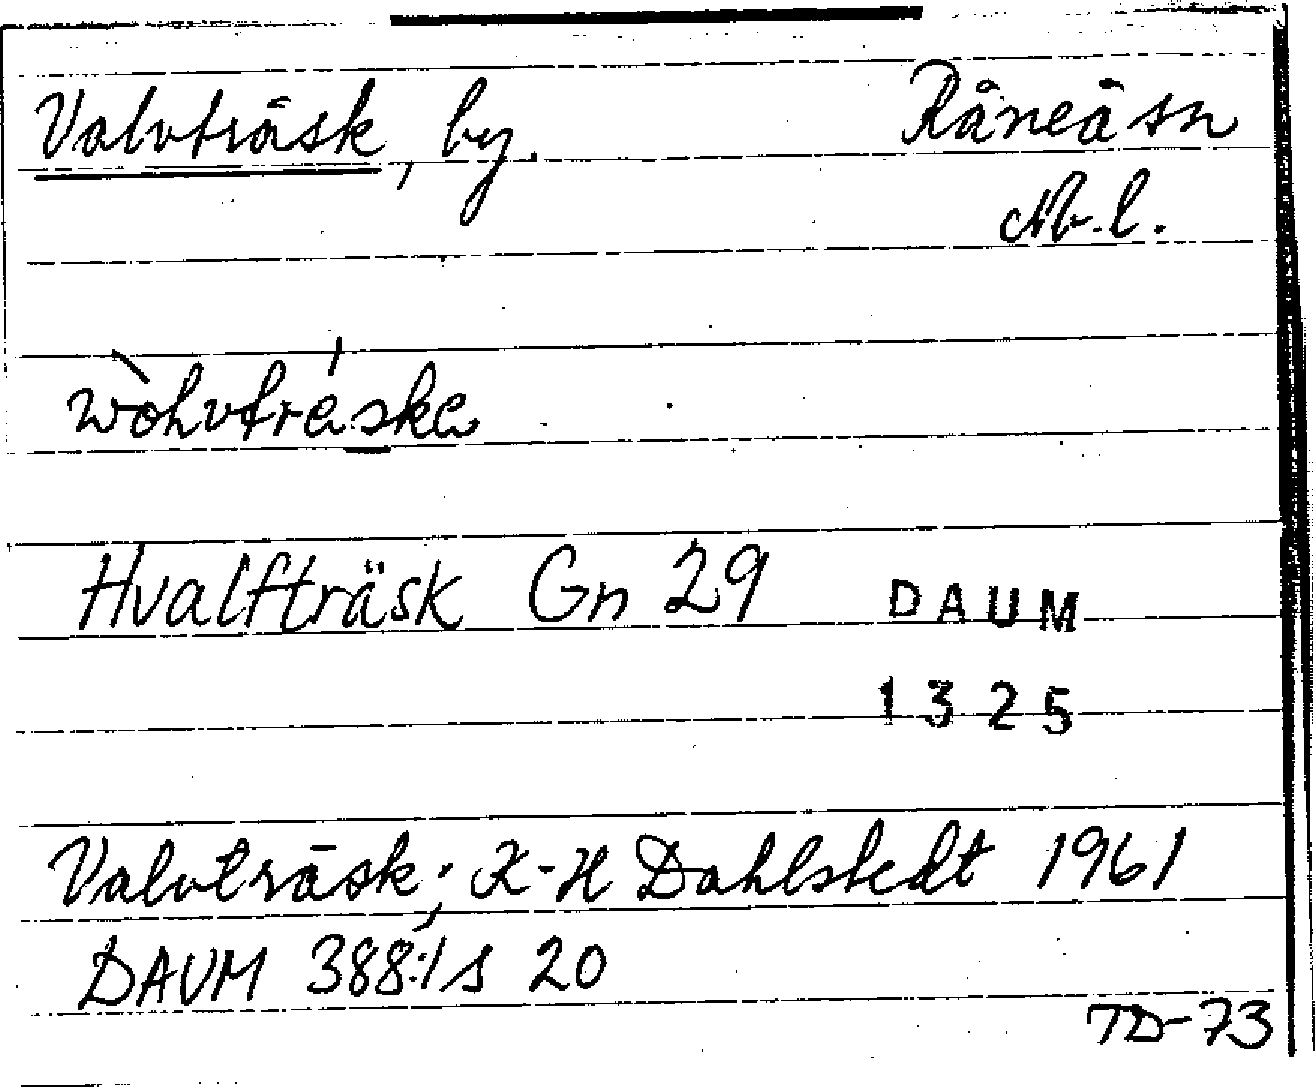 Valvträsk, by. Råneå sn
Nb.l.
wòhvtréska
Hvalfträsk Gn 29 DAUM
1325
Valvträsk; K-H Dahlstedt 1961
DAUM 388:1 s 20
TD-73